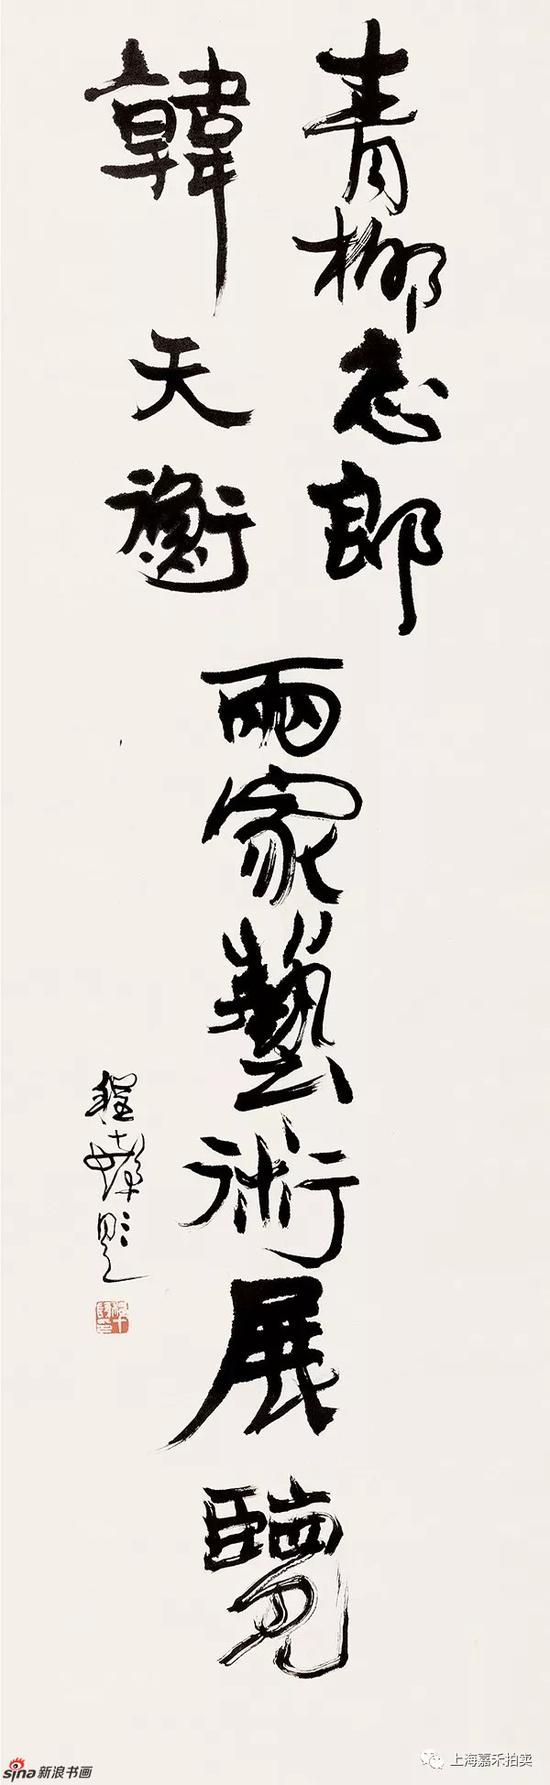 青柳志郎
韓天衡
兩家藝術展覽
程十髮題
sina新浪书画
上海嘉禾拍卖